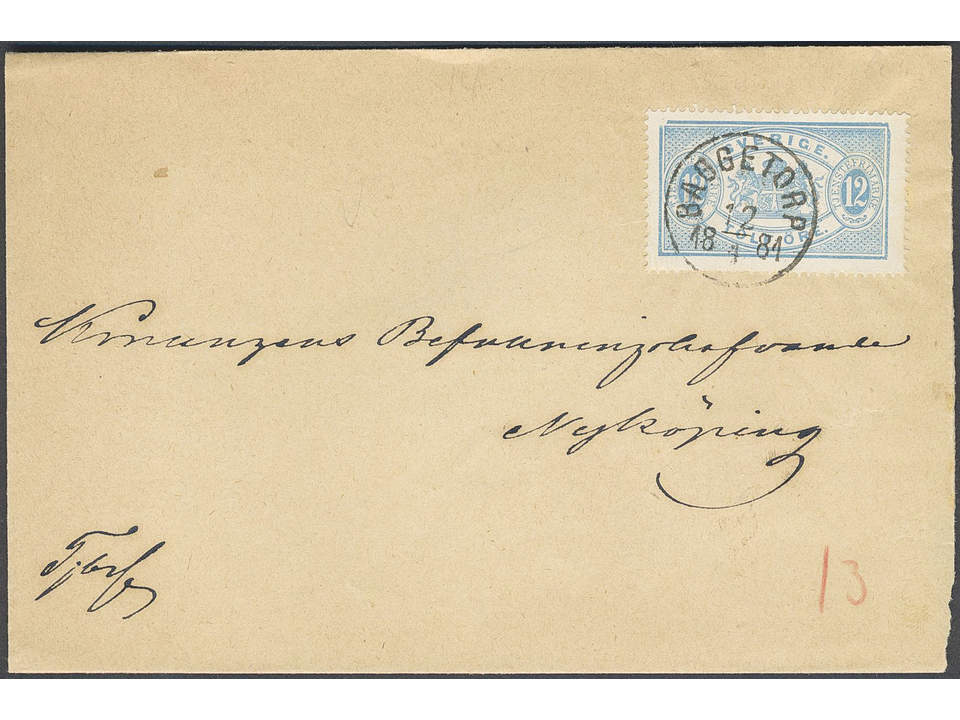 SVERIGE.
TJENSTEFRIMÄRKE
12
12
TOLF ÖRE.
BAGGETORP
12
1
18 81
Konungens Befallningshafvande
Nyköping
Tjbref
13